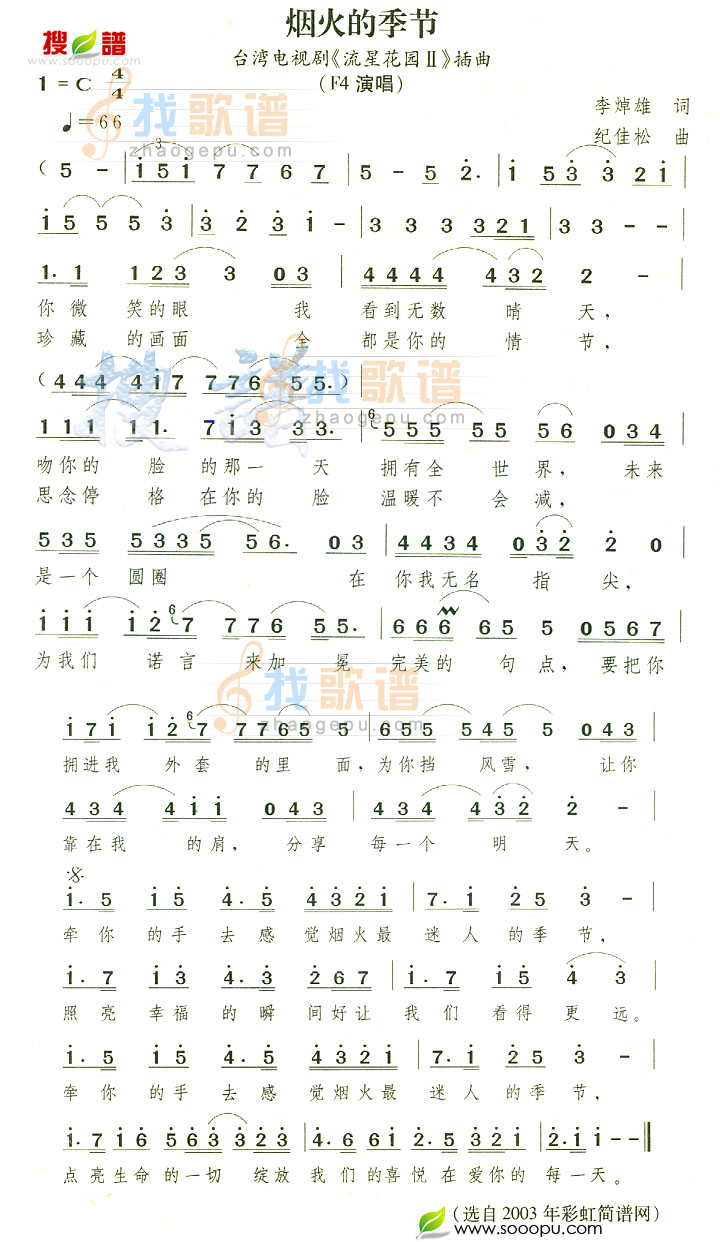 烟火的季节
搜 谱
www.sooopu.com
台湾电视剧《流星花园Ⅱ》插曲
(F4 演唱)
1=C 4/4
♩=66
李焯雄 词
纪佳松 曲
找歌谱
zhaogepu.com
(5 - | 1 5 1 7 7 6 7 | 5 - 5 2. | 1 5 3 3 2 1 |
1 5 5 5 3 | 3 2 3 1 - | 3 3 3 3 2 1 | 3 3 - - |
1. 1 1 2 3 3 0 3 | 4 4 4 4 4 3 2 2 - |
你 微 笑的眼 我 看到无数 晴 天,
珍 藏 的画面 全 都是你的 情 节,
(4 4 4 4 1 7 7 7 6 5 5.)
找歌谱
zhaogepu.com
1 1 1 1 1. 7 1 3 3 3. | 6 5 5 5 5 5 5 6 0 3 4 |
吻你的 脸 的那一 天 拥有全 世 界, 未来
思念停 格 在你的 脸 温暖不 会 减,
5 3 5 5 3 3 5 5 6. 0 3 | 4 4 3 4 0 3 2 2 0 |
是一个 圆圈 在 你我无名 指 尖,
1 1 1 1 2 6 7 7 7 6 5 5. | 6 6 6 6 5 5 0 5 6 7 |
为我们 诺言 来加 冕 完美的 句点, 要把你
找歌谱
zhaogepu.com
1 7 1 1 2 6 7 7 7 6 5 5 | 6 5 5 5 4 5 5 0 4 3 |
拥进我 外套 的里 面, 为你挡 风雪, 让你
4 3 4 4 1 1 0 4 3 | 4 3 4 4 3 2 2 - |
靠在我 的肩, 分享 每一个 明 天。
1. 5 1 5 4. 5 4 3 2 1 | 7. 1 2 5 3 - |
牵 你 的 手 去 感 觉烟火最 迷 人 的 季 节,
1. 7 1 3 4. 3 2 6 7 | 1. 1 1 5 4 3 |
照 亮 幸 福 的 瞬 间好让 我 们 看得 更 远。
1. 5 1 5 4. 5 4 3 2 1 | 7. 1 2 5 3 - |
牵 你 的 手 去 感 觉烟火最 迷 人 的 季 节,
1. 7 1 6 5 6 3 3 3 2 3 | 4. 6 6 1 2. 5 3 1 | 2. 1 1 - - ||
点亮生命的一切 绽放 我们的喜悦在爱你的 每一天。
(选自 2003 年彩虹简谱网)
www.sooopu.com